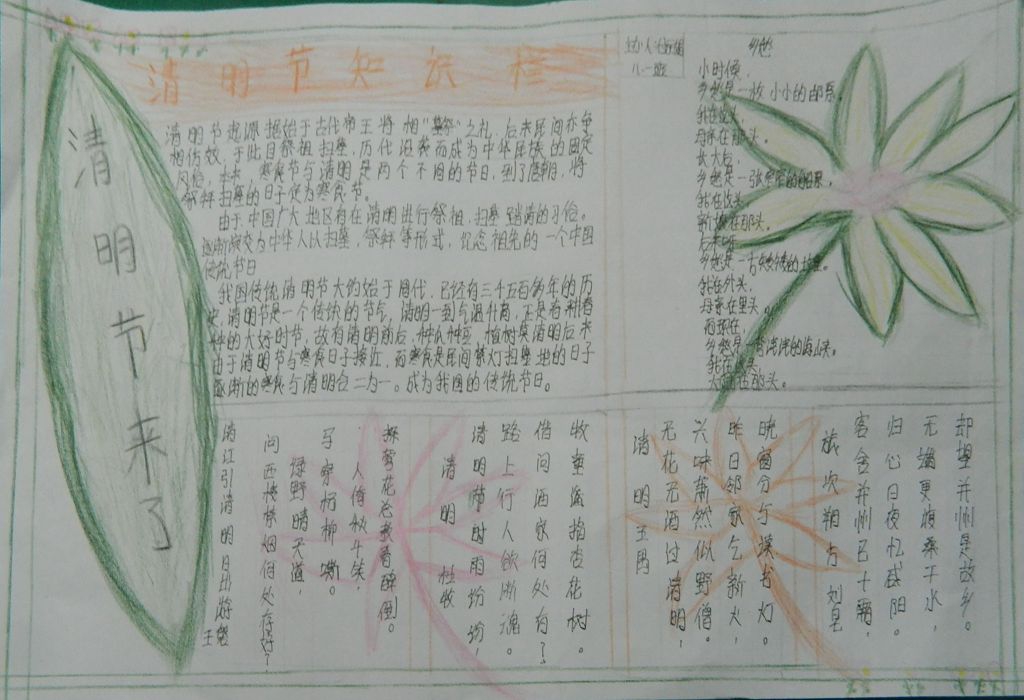 清明节来了
清明节知识栏
清明节起源据始于古代帝王将相"墓祭"之礼,后来民间亦争
相仿效,于此日祭祖扫墓,历代沿袭而成为中华民族的固定
风俗,本来,寒食节与清明是两个不同的节日,到了唐朝,将
祭拜扫墓的日子定为寒食节。
由于中国广大地区有在清明进行祭祖,扫墓踏清的习俗。
逐渐演变为中华人以扫墓,祭拜等形式,纪念祖先的一个中国
传统节日
我国传统清明节大约始于周代,已经有三千五百多年的历
史,清明节是一个传统的节气,清明一到气温升高,正是春耕春
种的大好时节,故有清明前后,种瓜种豆,植树莫清明后来
由于清明节与寒食日子接近,而寒食是民间禁灯扫墓地的日子
逐渐的寒食与清明合二为一。成为我国的传统节日。
八.一班
乡愁
小时候,
乡愁是一枚小小的邮票。
我在这头,
母亲在那头。
长大后,
乡愁是一张窄窄的船票,
我在这头,
新娘在那头。
后来啊
乡愁是一方矮矮的坟墓。
我在外头,
母亲在里头。
而现在,
乡愁是一湾浅浅的海峡。
我在这头,
大陆在那头。
旅次朔方 刘皂
客舍并州已十霜,
归心日夜忆咸阳。
无端更渡桑干水,
却望并州是故乡。
清明 王禹
无花无酒过清明,
兴味萧然似野僧。
昨日邻家乞新火,
晓窗分与读书灯。
清明 杜牧
清明时节雨纷纷,
路上行人欲断魂。
借问酒家何处有了
牧童遥指杏花树。
清江引清明日出游 王磐
问西楼禁烟何处好?
绿野晴天道,
写穿杨柳嘶。
人倚秋千笑,
探莺花总教春醉倒。